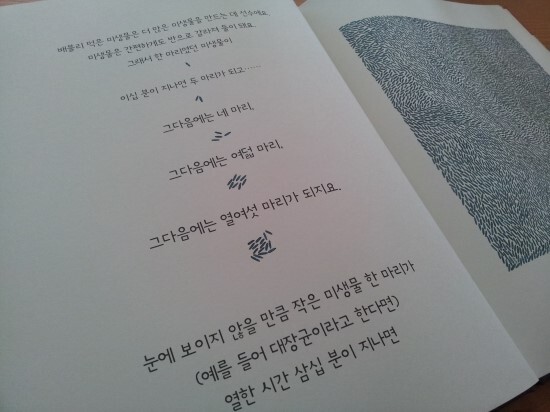 배불리 먹은 미생물은 더 많은 미생물을 만드는 데 선수예요.
미생물은 간편하게도 반으로 갈라져 둘이 돼요.
그래서 한 마리였던 미생물이
이십 분이 지나면 두 마리가 되고……
그다음에는 네 마리,
그다음에는 여덟 마리,
그다음에는 열여섯 마리가 되지요.
눈에 보이지 않을 만큼 작은 미생물 한 마리가
(예를 들어 대장균이라고 한다면)
열한 시간 삼십 분이 지나면